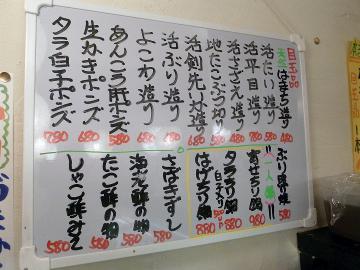 目玉品
天然はまち造り 480
活たい造り 580
活平目造り 780
活さざえ造り 680
地だこぶつ切り 580
活剣先いか造り 680
活ぶり造り
よこわ造り 480
あんこう肝ポンズ 580
生かきポンズ 680
タラ白子ポンズ 780
ぶり照焼 580
!!一人鍋!!
寄せちり鍋 980
タラちり鍋 880
白子入り
はげちり鍋 880
さばきずし 580
海光酢の物 550
たこ酢の物 580
しゃこ酢みそ 580